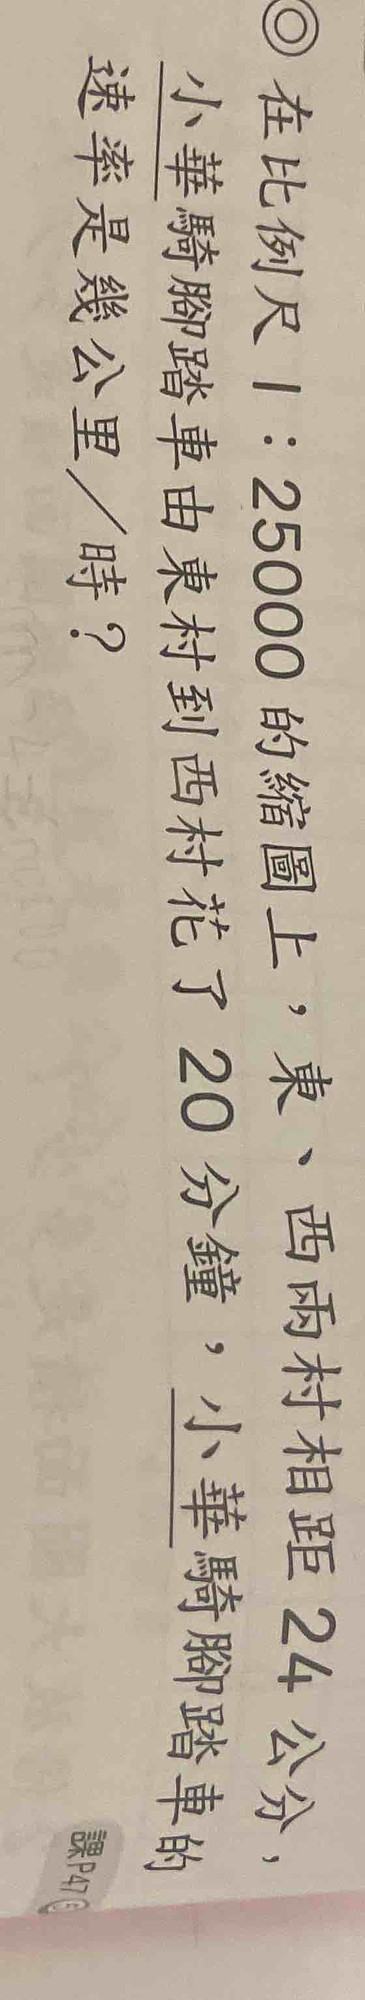 ◎在比例尺1：25000的縮圖上，東、西兩村相距24公分，
小華騎腳踏車由東村到西村花了20分鐘，小華騎腳踏車的
速率是幾公里／時？
課P47